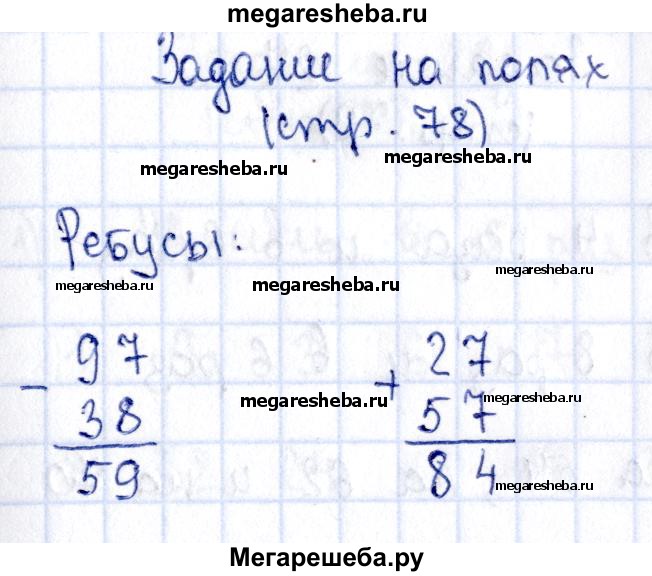 megaresheba.ru
Задание на полях
(стр. 78)
megaresheba.ru megaresheba.ru
Ребусы:
megaresheba.ru megaresheba.ru megaresheba.ru
97 27
- 38 megaresheba.ru + 57 megaresheba.ru
59 84 megaresheba.ru
Мегарешеба.ру